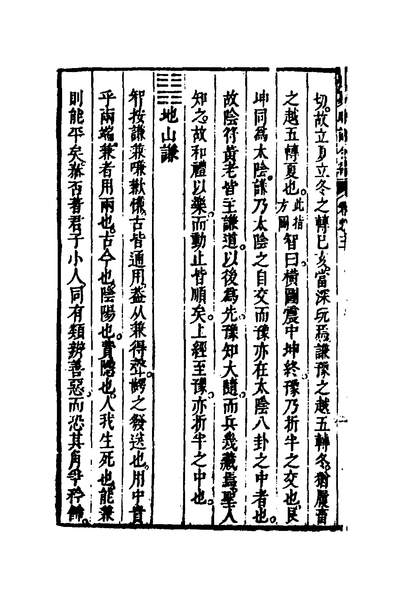 切故立夏立冬之轉巳亥當深玩焉謙豫之越五轉冬猶履
之越五轉夏也此指方圖智曰橫圖震中坤終豫乃折半之交也艮
坤同為太陰謙乃太陰之自交而豫亦在太陰八卦之中者也
故陰符黃老皆主謙道以後為先豫知大隨而兵幾藏焉聖人
知之故和禮以樂而動止皆順矣上經至豫亦折半之中也
䷎地山謙
智按謙兼嗛歉慊古皆通用蓋从兼得聲 之發送也用中貴
乎兩端兼者用兩也古今也陰陽也費隱也人我生死也能兼
則能平矣 否著君子小人同有類辨善惡而恐其 爭矜飾